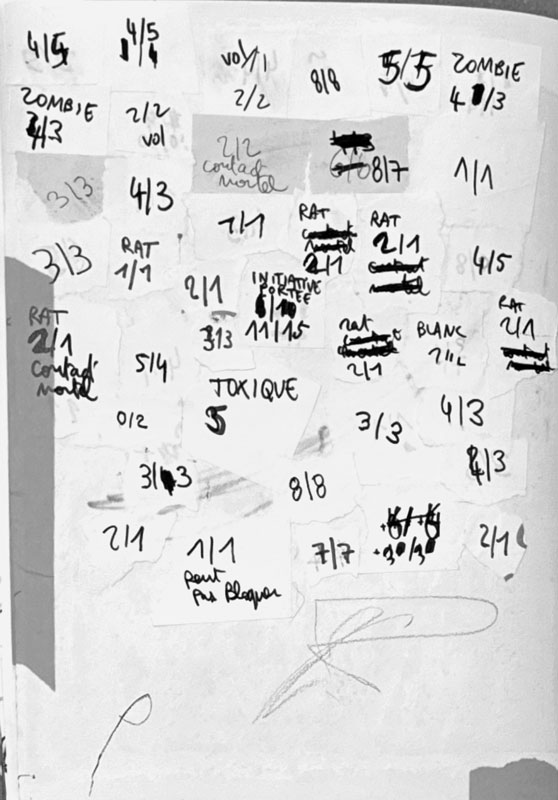 4/5
4/5
vol 1/1
2/2
8/8
5/5
ZOMBIE
4/3
ZOMBIE
4/3
2/2
vol
2/2
contact
mortel
8/7
1/1
3/3
4/3
1/1
RAT
2/1
RAT
2/1
3/3
RAT
1/1
4/5
2/1
INITIATIVE
PORTÉE
11/15
RAT
2/1
contact
mortel
3/3
5/4
rat
2/1
BLANC
RAT
2/1
TOXIQUE
5
0/2
3/3
4/3
3/3
8/8
4/3
2/1
1/1
peut
pas Bloquer
7/7
2/1